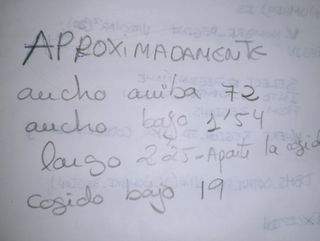 APROXIMADAMENTE
ancho arriba 72
ancho bajo 1'54
largo 225-Aparte la cogido
cogido bajo 19